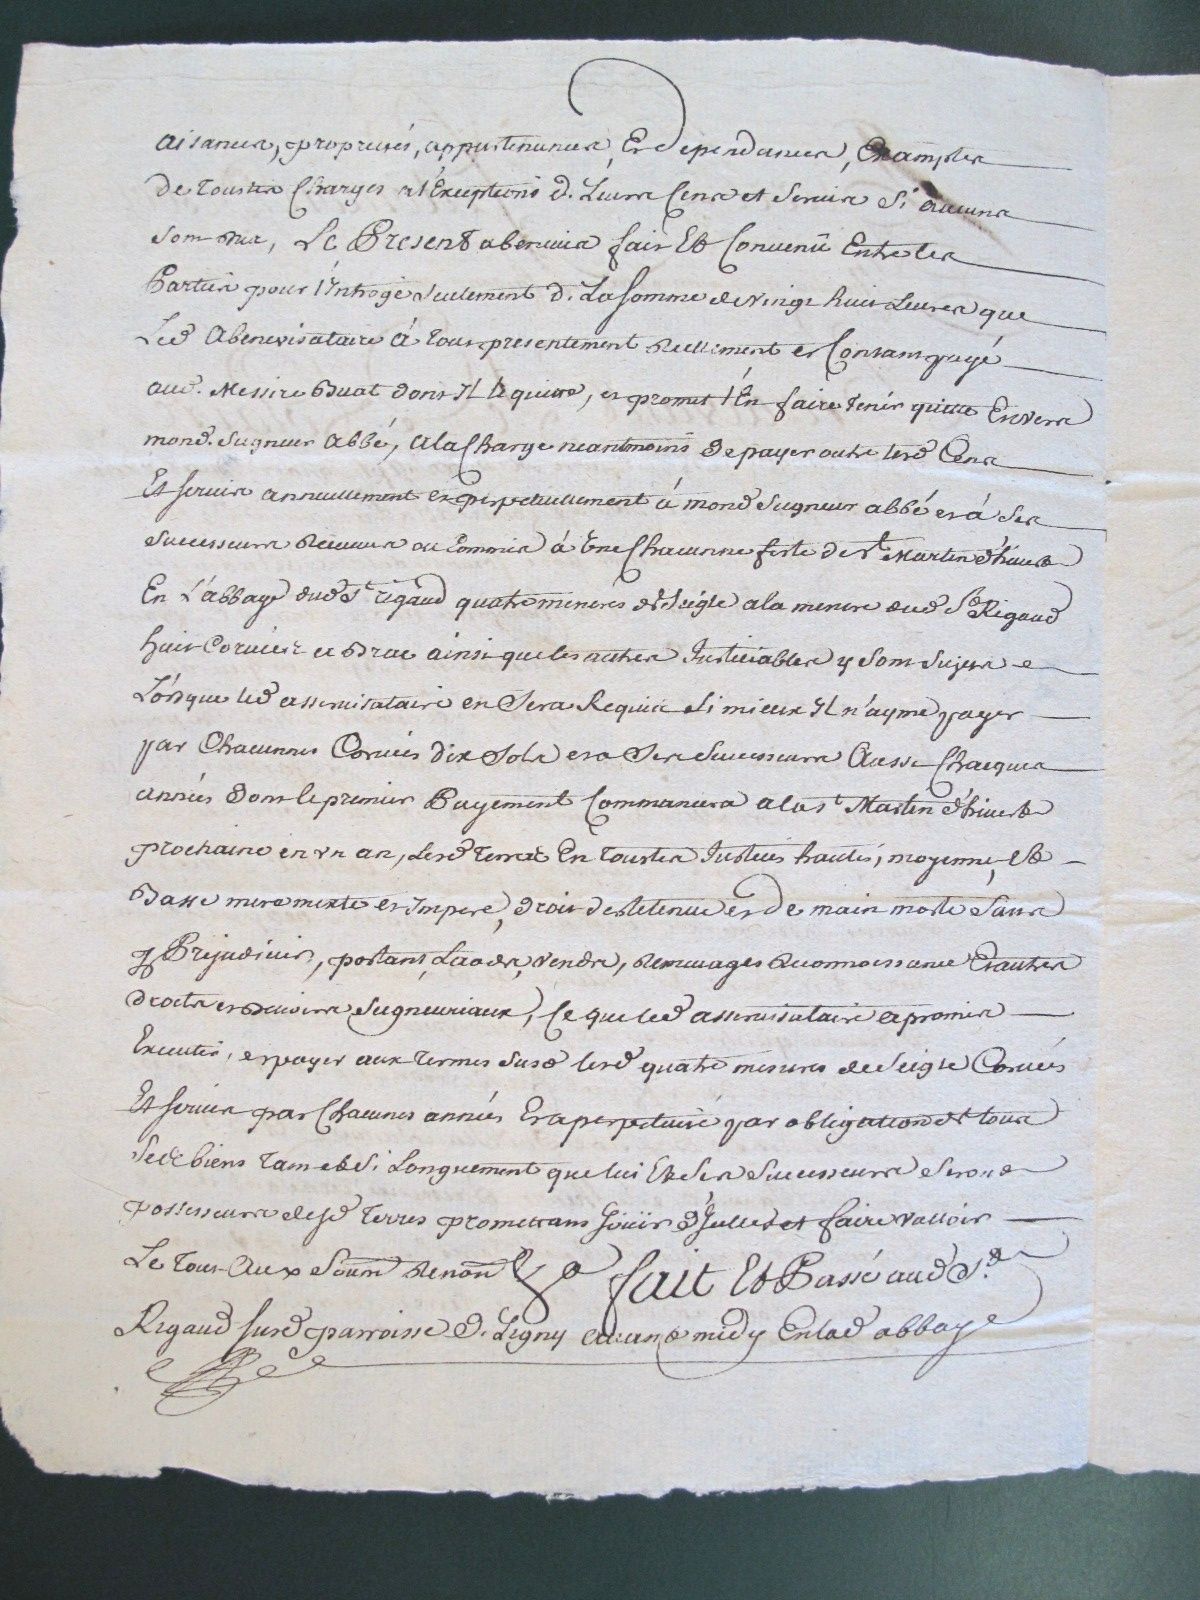 aisances, proprietés, appartenances, Et dependances, Exemptes
de Toustes Charges a l'Exceptions d. Leurs Cens et Servis Si aucuns
Sont dus, Le Present abenevis fait Et Convenû Entre les
Parties pour l'Introge Seulement d. La Somme de vingt huit Livres que
Led Abenevisataire á Tout presentement Reellement et Contant payé
aud. Messire Buat dont Il le quitte, et promet l'En faire Tenir quitte Envers
mond. Seigneur Abbé, a la Charge neantmoins de payer outre lesd Cens
Et Servis annuellement et perpetuellement á mond Seigneur abbé et á Ses
Successeurs Receveurs ou Commis á Une Chacunne feste de St Martin d'hiver
En L'abbaye dud St rigaud quatre mesures de Seigle a la mesure dud St Rigaud
huit Corvées de Bras ainsi que les autres Justiciables y Sont Sujets
Lórsque led asservisataire en Sera Requis Si mieux Il n'ayme payer
par Chacunnes Corvées dix Sols et a Ses Successeurs Aussi Chacques
années dont le premier Payement Commancera a la St Martin d'hiver
prochaine en vn an, Lesd Terres En Toustes Justices hautes, moyenne, Et
Basse mere mixte et Impere, droit de Retenue et de main morte Sans
y Prejudicier, portant Laods, vends, Remuages Reconnoissance Et autres
droits et Devoirs Seigneuriaux, Ce que led asservisataire a promis
Executer, et payer aux Termes Susd lesd quatre mesures de Seigle Corvées
Et Servis par Chacunes années Et a perpetuité par obligation de tous
Sesd biens Tant et Si Longuement que lui Et Ses Successeurs Seront
possesseurs desd Terres promettant Joüir d'Icelles et faire valloir
Le Tout Aux Soum Renon & a fait Et Passé aud St
Rigaud Susd parroisse d. Ligny avant midy En lad abbaye